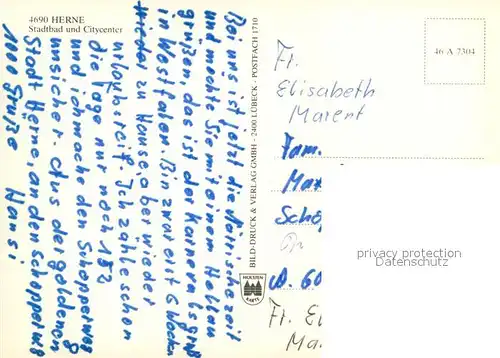 4690 HERNE
Stadtbad und Citycenter
Bei uns ist jetzt die Närrische Zeit
und möchte Sie mit einem Helau
grüßen das ist der Karnevalsgruß
in Westfalen Bin zwar erst 6 Wochen
wieder zu Hause, aber wieder
urlaubsreif. Ich zähle schon
die Tage nur noch 152
und ich mache den Schopperweg
unsicher. Aus der goldenen
Stadt Herne, an den Schopperweg
1000 Grüße Hansi
BILD-DRUCK & VERLAG GMBH - 2400 LÜBECK - POSTFACH 1710
HOLSTEN
KARTE
46 A 7304
Fr.
Elisabeth
Marent
Fam.
Max
Schop
privacy protection
Datenschutz
A. 60
Fr. El
Ma